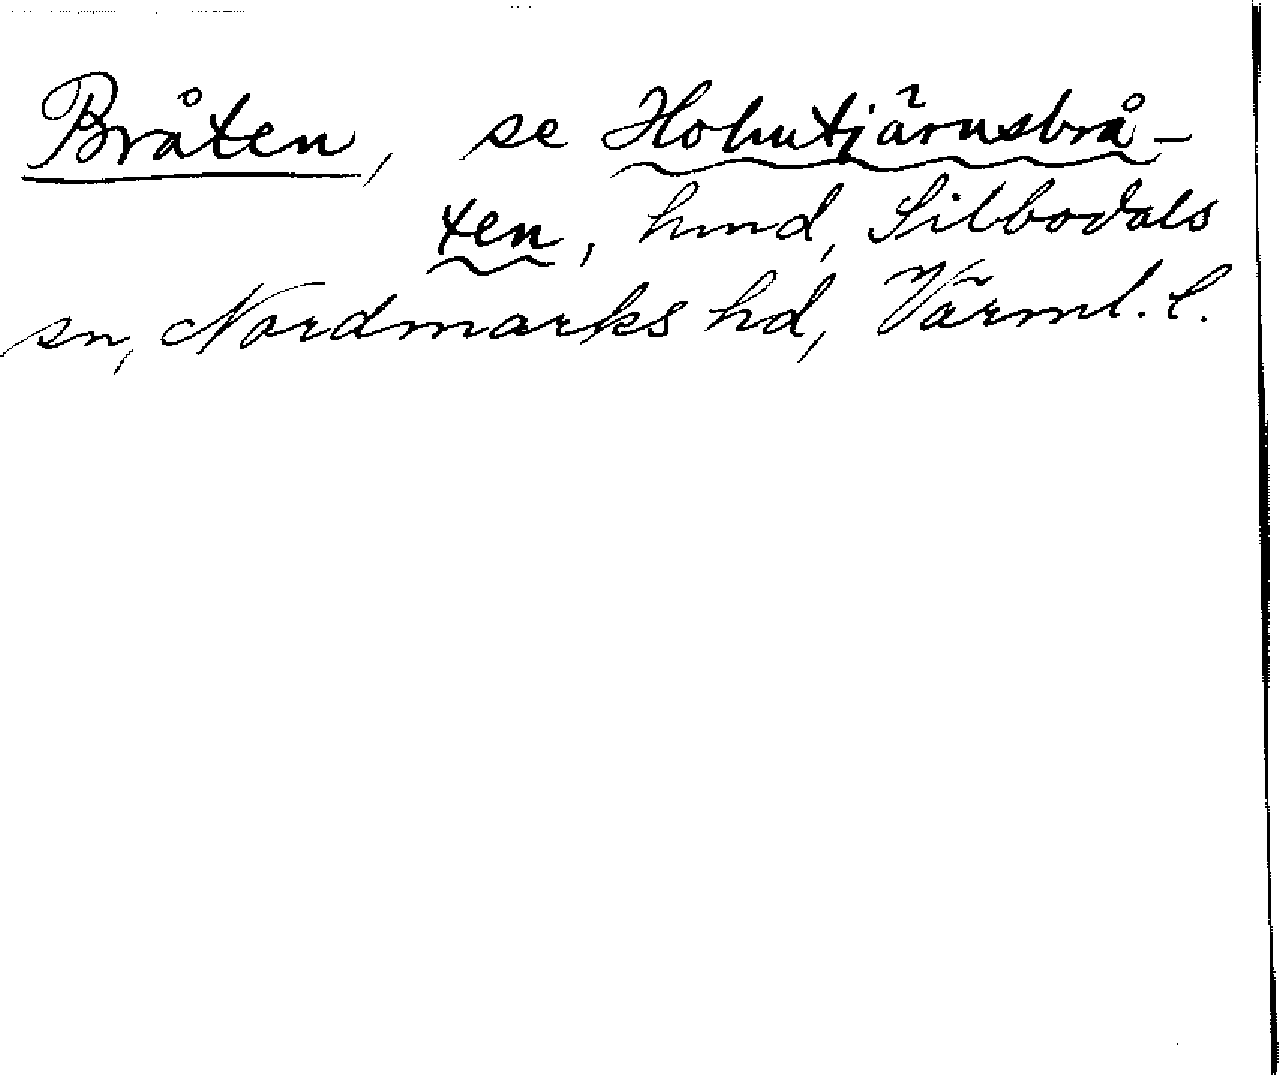 Bråten, se Holmtjärnsbrå-
ten, hmd, Silbodals
sn, Nordmarks hd, Värml. l.